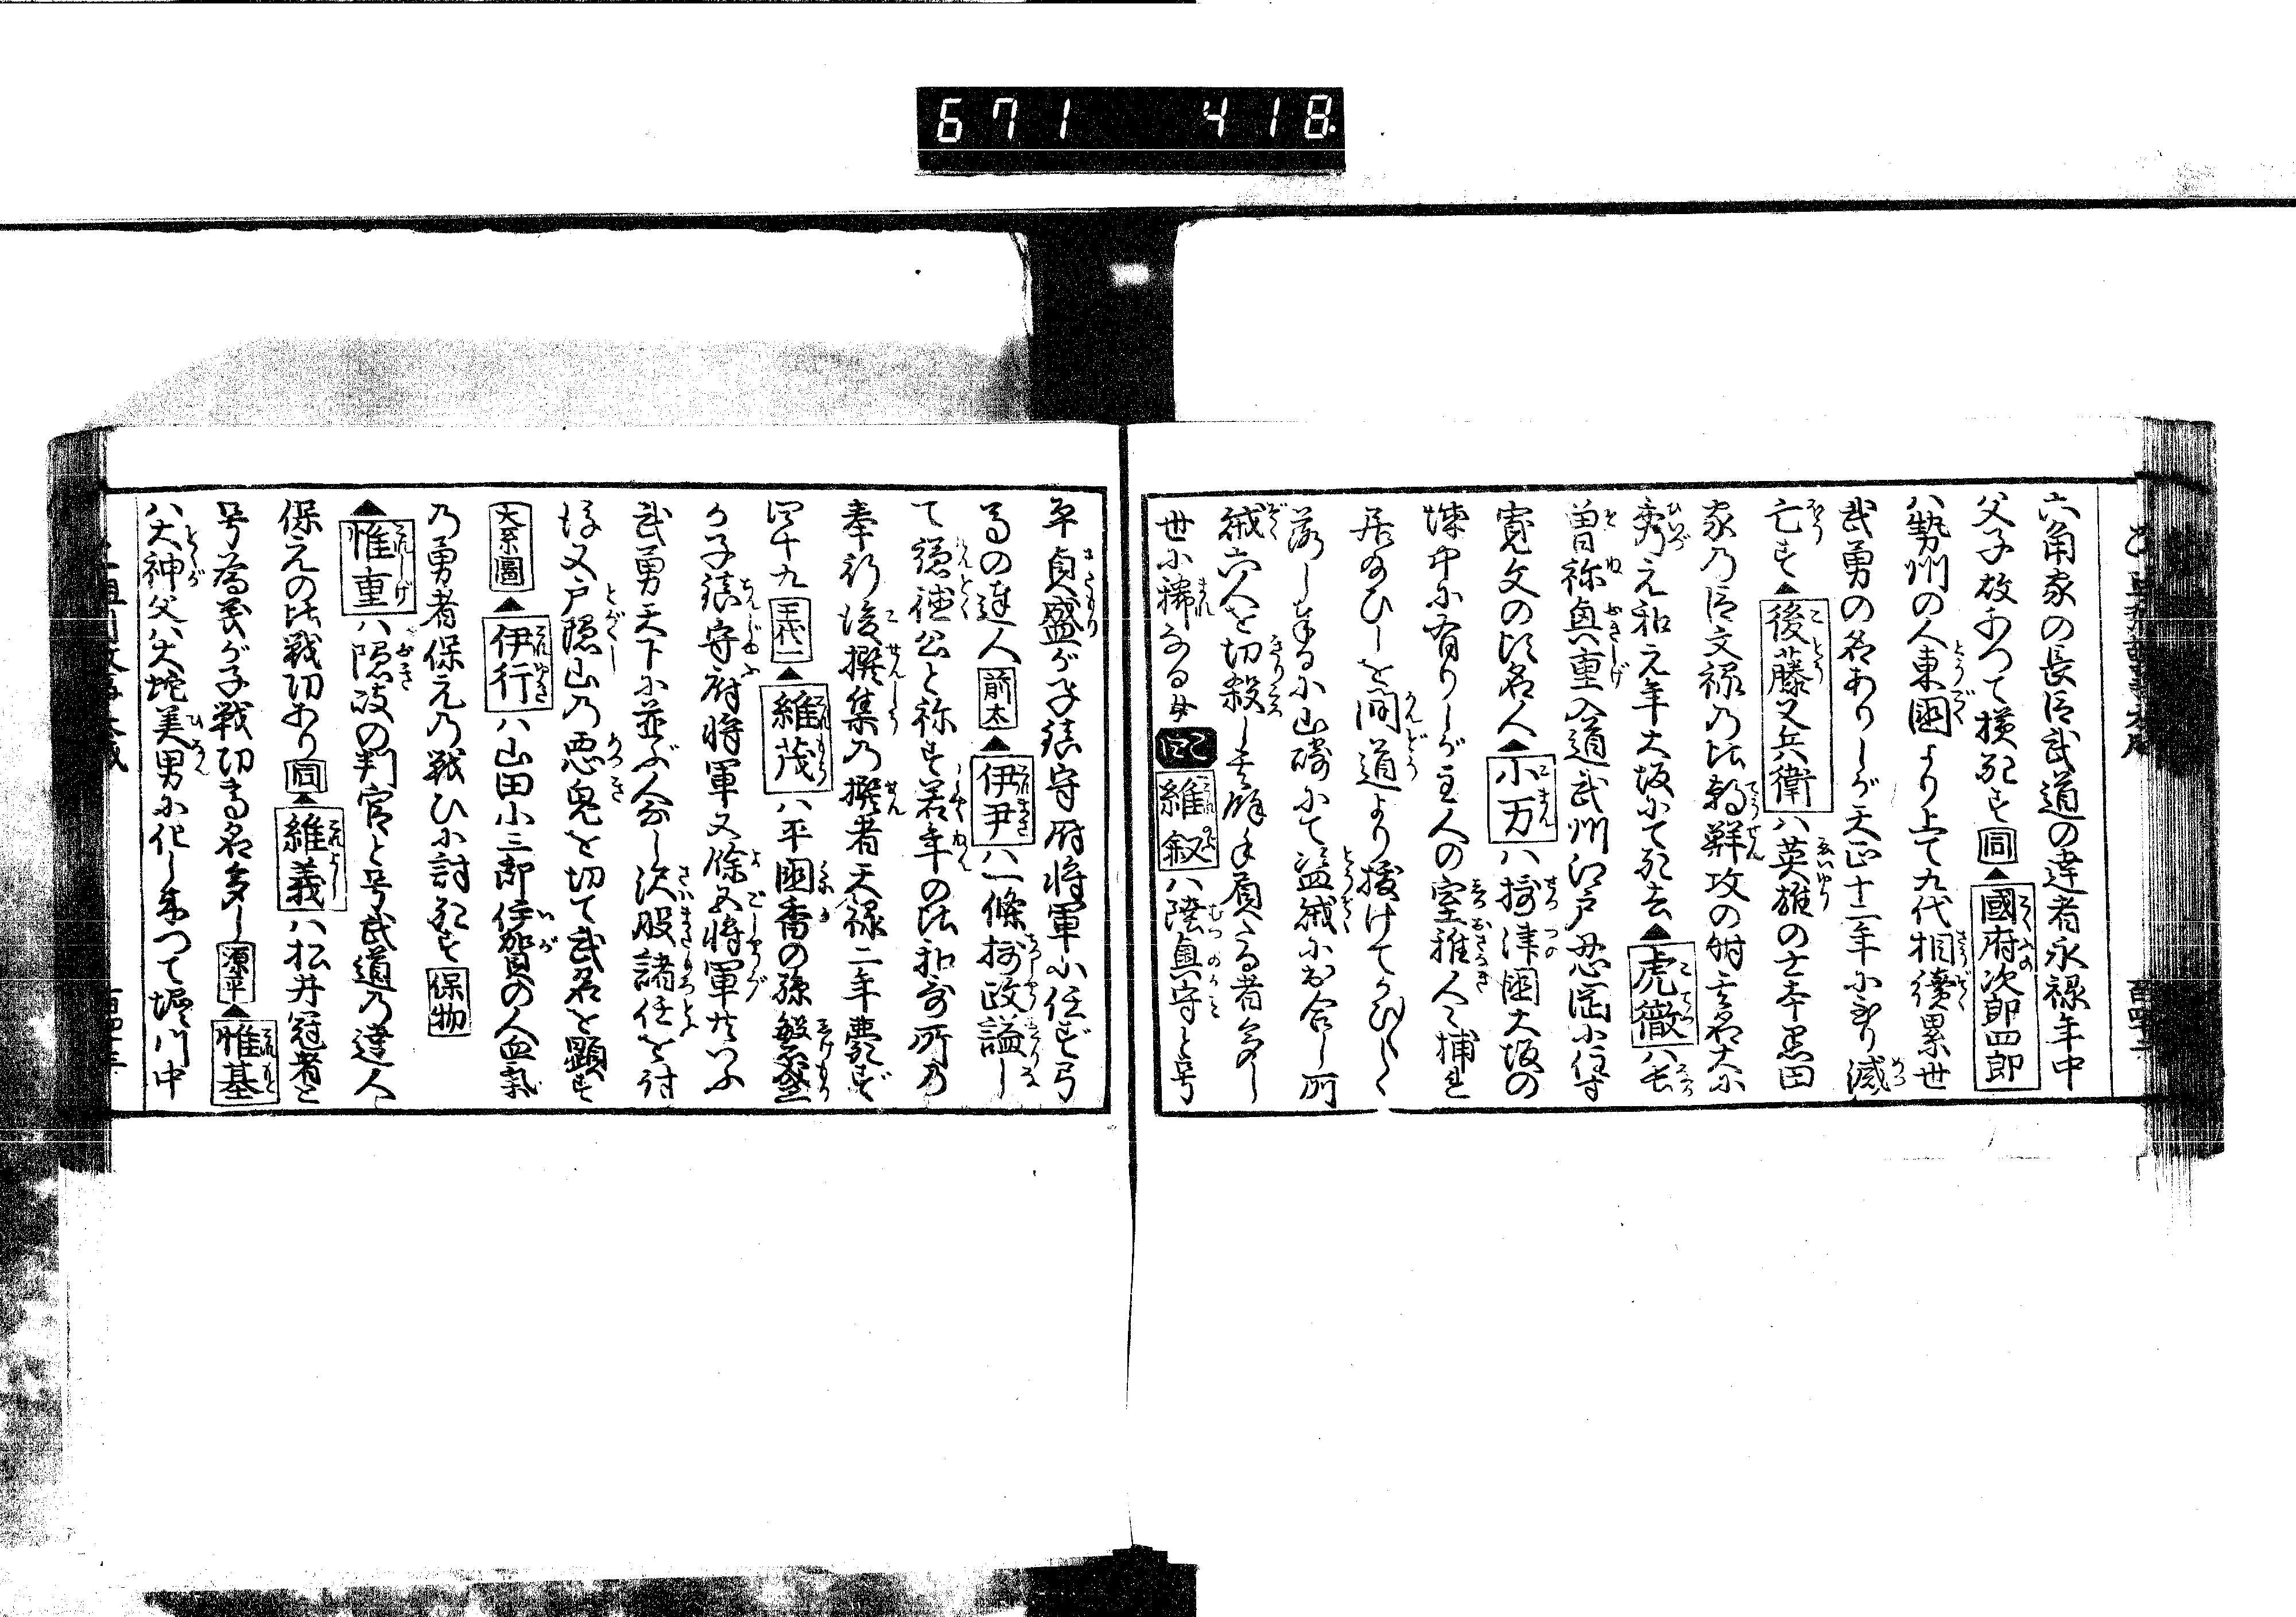 671 418
六角家の長臣武道の達者永禄年中
父子故あつて横死す 同 ▲國府次郎四郎
ハ勢州の人東國より上て九代相續累世
武勇の名ありしが天正十二年小より滅
亡す▲後藤又兵衛ハ英雄の士本黒田
家乃臣文禄乃比朝鮮攻の時高名大小
秀元和元年大坂小て死去▲虎徹ハ長
曽祢奥重入道武州江戸忍岡小住す
寛文の比名人▲小万ハ摂津國大坂の
小有りしが主人の室雅人を捕
居給ひしを間道より援けて
落し奉る小山崎小て盗賊小出合し所
賊六人を切殺し其餘手負たる者多し
世小稀なる女 維叙ハ陸奥守と号
平貞盛が子鎮守府将軍小任ず弓
馬の達人 前太 ▲伊尹ハ一條摂政謚し
て謙徳公と称す若年の比和歌所乃
奉行後撰集乃撰者天禄二年薨ず
四十九 王代一 ▲維茂ハ平國香の孫繁盛
が子鎮守府将軍又餘五将軍共いふ
武勇天下小並ぶ人なし沢股諸任を討
後又戸隠山乃悪鬼を切て武名を顕す
大系圖 ▲伊行ハ山田小三郎伊賀の人血氣
乃勇者保元乃戦ひ小討死す 保物
▲惟重ハ隠岐の判官と号武道乃達人
保元の比戦功あり 同 ▲維義ハ松井冠者と
号為義が子戦功高名多し 源平 ▲惟基
ハ大神父ハ大蛇美男小化し来つて堀川中